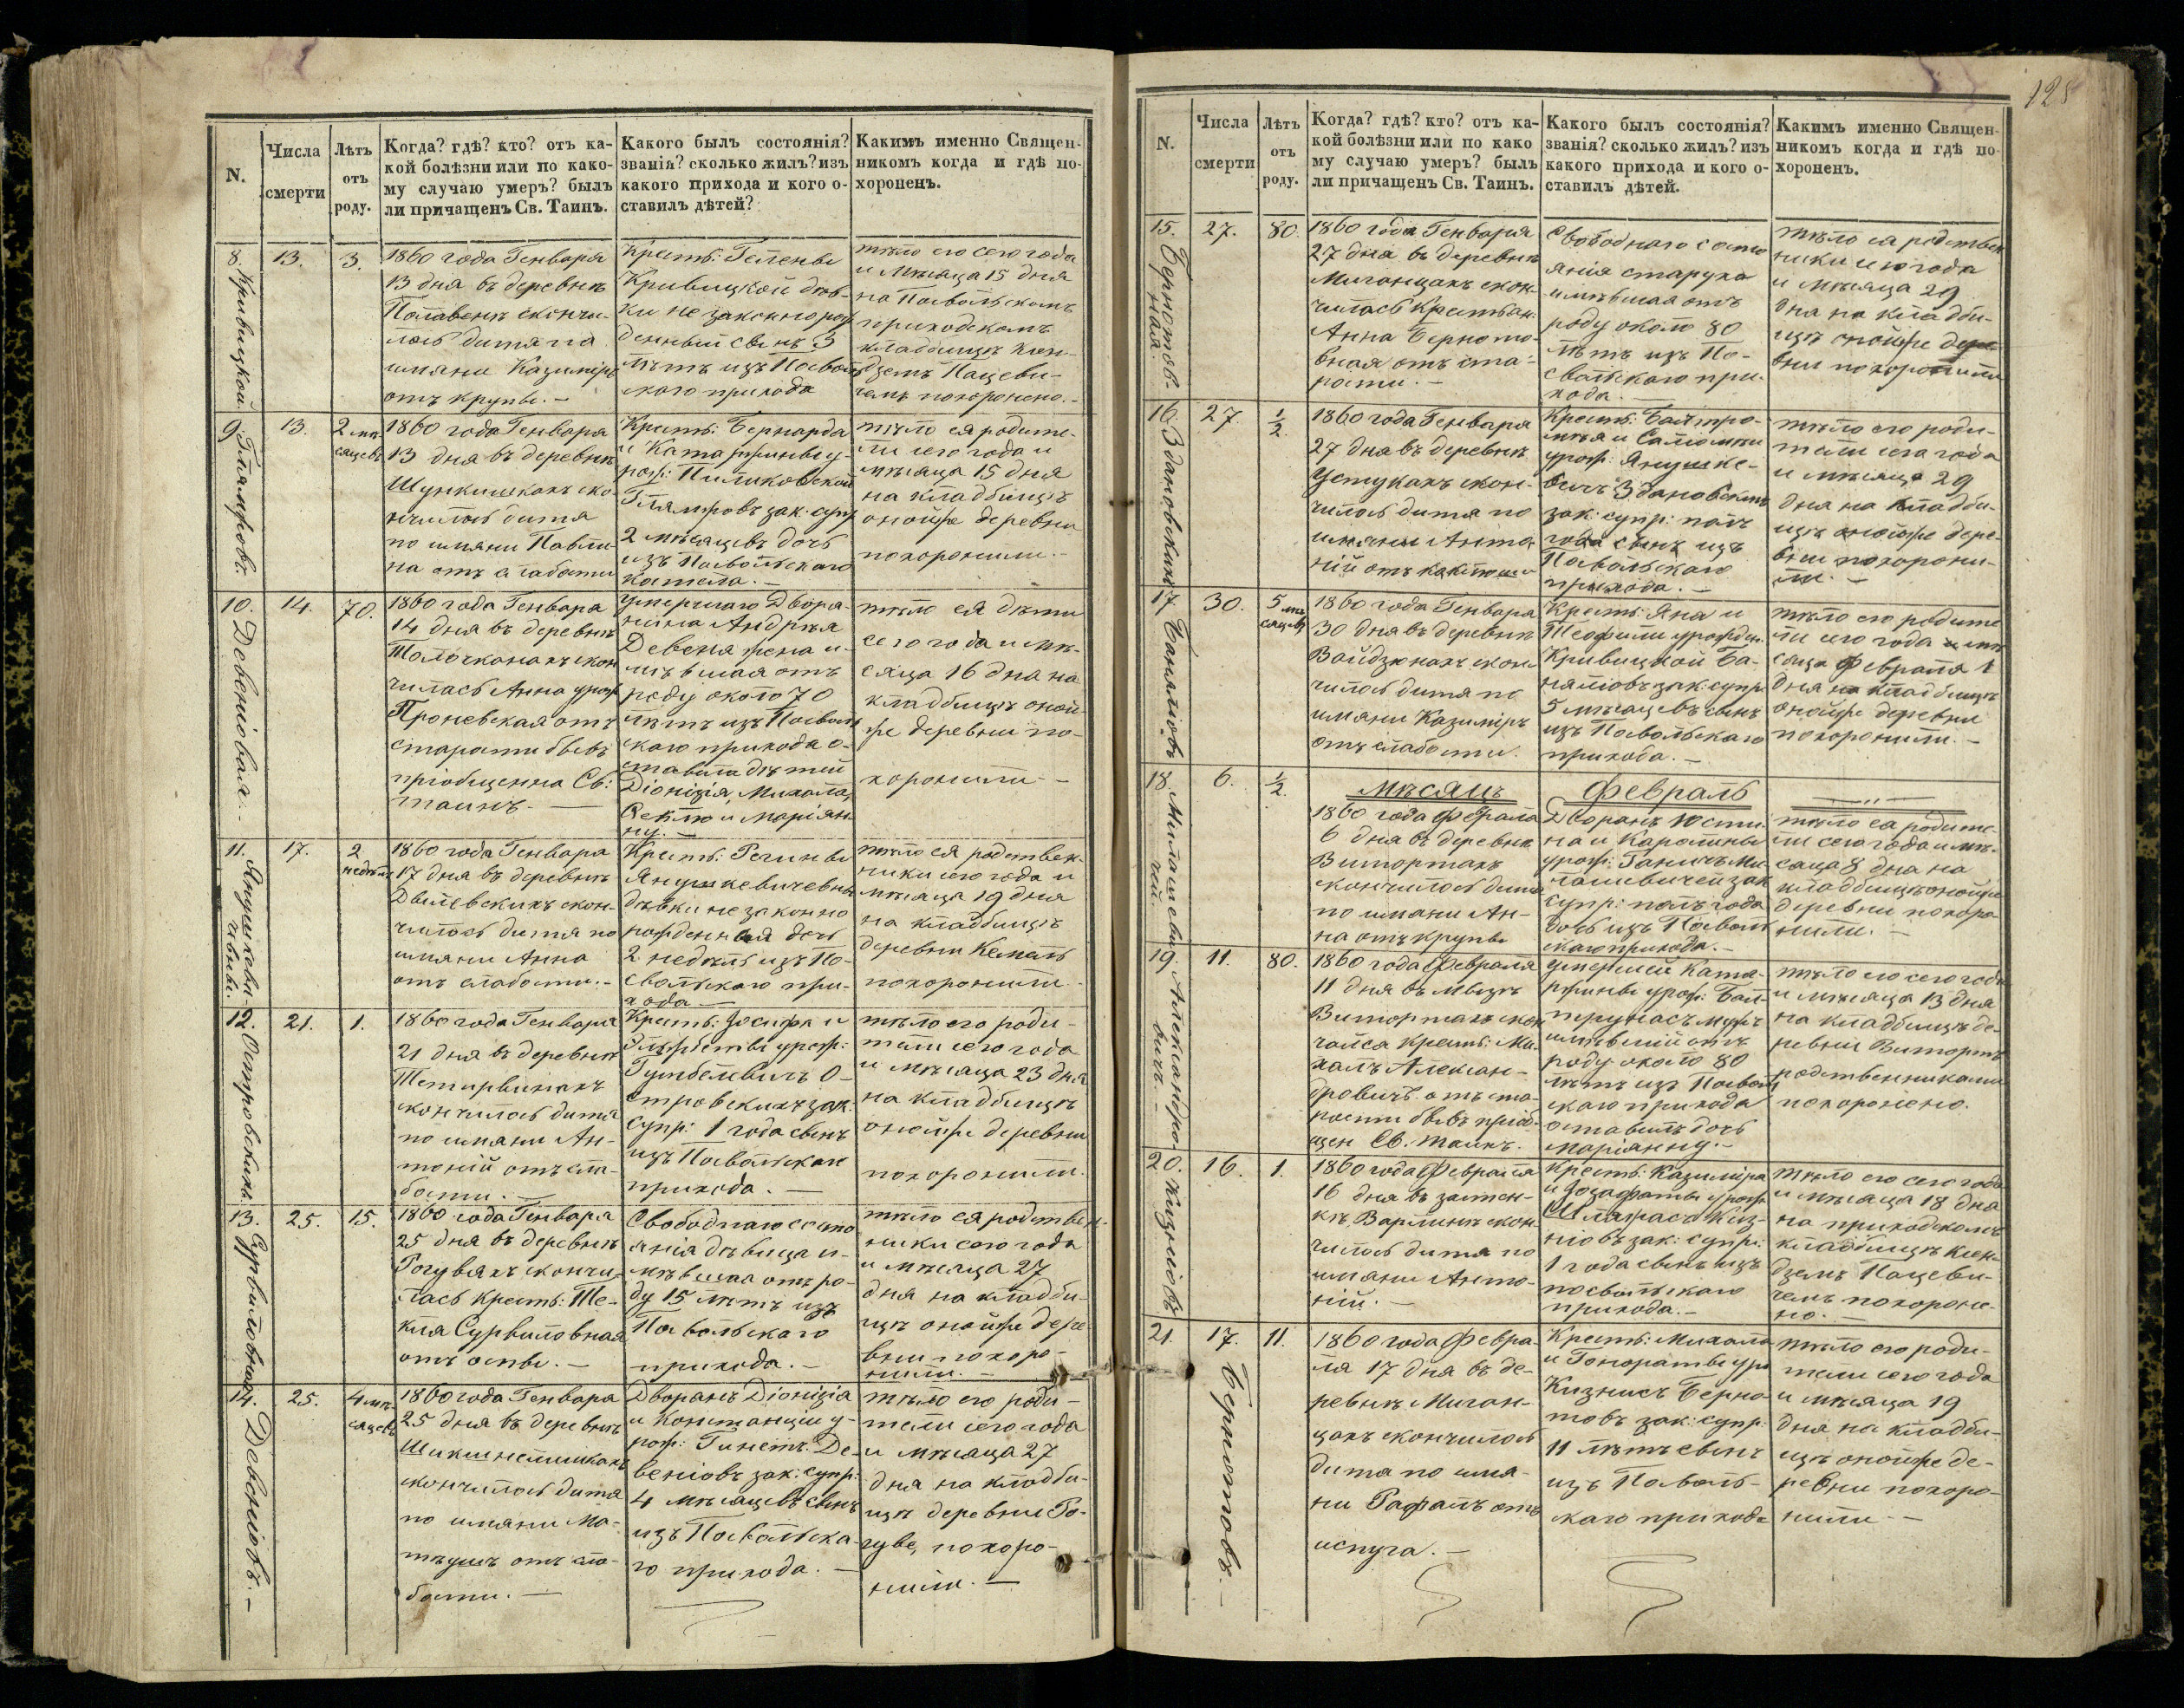 N.
Числа
смерти
Лѣтъ
отъ
роду.
Когда? гдѣ? кто? отъ ка-
кой болѣзни или по како-
му случаю умеръ? былъ
ли причащенъ Св. Таинъ.
Какого былъ состоянія?
званія? сколько жилъ? изъ
какого прихода и кого о-
ставилъ дѣтей?
Какимъ именно Священ-
никомъ когда и гдѣ по-
хороненъ.
8.
Кривицкой.
13.
3.
1860 года Генваря
13 дня въ деревнѣ
скончи-
лось дитя по
имяни Казиміръ
отъ крупы. —
Кресть: Гелены
Кривицкой дѣв-
ки не законно рож
денный сынъ 3
лѣтъ изъ Посволь
скаго прихода
тѣло его сего года
и мѣсяца 15 дня
на Посвольскомъ
приходскомъ
кладбищѣ ксен-
дземъ Пацеви-
чемъ похоронено. —
9.
13.
2 мѣ-
сяцевъ
1860 года Генваря
13 дня въ деревнѣ
ско-
нчилось дитя
по имяни Павли-
на отъ слабости
Кресть: Бернарда
и Катаржины у-
рож: Пиликовской
зак: супр
2 мѣсяцевъ дочь
изъ Посвольскаго
костела. —
тѣло ея родите-
ли сего года и
мѣсяца 15 дня
на кладбищѣ
онойже деревни
похоронили. —
10.
Девеніовая. —
14.
70.
1860 года Генваря
14 дня въ деревнѣ
Толочканахъ скон
чилась Анна урож
Проневская отъ
старости бывъ
пріобщенна Св:
таинъ. —
умершаго Дворя-
нина Андрѣя
Девеня жена и-
мѣвшая отъ
роду около 70
лѣтъ изъ Посволь
скаго прихода о-
ставила дѣтей
Діонизія, Михала,
Феклю и Маріян-
ну. —
тѣло ея дѣти
сего года и мѣ-
сяца 16 дня на
кладбищѣ оной-
же деревни по-
хоронили —
11.
Янушкеви-
чевны.
17.
2
недѣли
1860 года Генваря
17 дня въ деревнѣ
скон-
чилось дитя по
имяни Анна
отъ слабости. —
Крестъ: Регины
Янушкевичевны
дѣвки не законно
рожденная дочь
2 недѣль изъ По-
свольскаго при-
хода —
тѣло ея родствен-
ники сего года и
мѣсяца 19 дня
на кладбищѣ
деревни Кемань
похоронили
12.
Островскихъ.
21.
1.
1860 года Генваря
21 дня въ деревнѣ
Тетирвинахъ
скончилось дитя
по имяни Ан-
тоній отъ сла-
бости. —
Крестъ: Іосифа и
Эльжбеты урож:
О-
стровскихъ зак:
супр: 1 года сынъ
изъ Посвольскаго
прихода. —
тѣло его роди-
тели сего года
и мѣсяца 23 дня
на кладбищѣ
онойже деревни
похоронили.
13.
Сурвиловная
25.
15.
1860 года Генваря
25 дня въ деревнѣ
Рогувяхъ скончи
лась Крестъ: Те-
кля Сурвиловная
отъ оспы. —
Свободнаго состо
янія дѣвица и-
мѣвшая отъ ро-
ду 15 лѣтъ изъ
Посвольскаго
прихода. —
тѣло ея родствен-
ники сего года
и мѣсяца 27
дня на кладби-
щѣ онойже дере
вни похоро-
нили. —
14.
Девеніовъ. —
25.
4 мѣ-
сяцевъ
1860 года Генваря
25 дня въ деревнѣ
скончилось дитя
по имяни Ма-
тѣушъ отъ сла-
бости. —
Дворянъ Діонизія
и Констанціи у-
рож: Гинетъ Де-
веніовъ зак: супр:
4 мѣсяцевъ сынъ
изъ Посвольска-
го прихода. —
тѣло его роди-
тели сего года
и мѣсяца 27
дня на кладби-
щѣ деревни Ро-
гуве, похоро-
нили. —
N.
Числа
смерти
Лѣтъ
отъ
роду.
Когда? гдѣ? кто? отъ ка-
кой болѣзни или по како
му случаю умеръ? былъ
ли причащенъ Св. Таинъ.
Какого былъ состоянія?
званія? сколько жилъ? изъ
какого прихода и кого о-
ставилъ дѣтей.
Какимъ именно Священ-
никомъ когда и гдѣ по-
хороненъ.
15.
Бернотов-
ная
27.
80.
1860 года Генваря
27 дня въ деревнѣ
Миганцахъ скон-
чилась Крестьян:
Анна Берното-
вная отъ ста-
рости. —
Свободнаго состо
янія старуха
имѣвшая отъ
роду около 80
лѣтъ изъ По-
свольскаго при-
хода. —
тѣло ея родствен
ники сего года
и мѣсяца 29
дня на кладби-
щѣ онойже дере-
вни похоронили
16.
Здановскихъ
27.
1/2.
1860 года Генваря
27 дня въ деревнѣ
Устукахъ скон-
чилось дитя по
имяни Анто-
ній отъ коклюша
Крестъ: Балтро-
мѣя и Саломеи
урож: Янушке-
вичъ Здановскихъ
зак: супр: полъ
года сынъ изъ
Посвольскаго
прихода. —
тѣло его роди-
тели сего года
и мѣсяца 29
дня на кладби-
щѣ онойже дере-
вни похорони-
ли. —
17.
Банялiовъ
30.
5 мѣ
сяцевъ
1860 года Генваря
30 дня въ деревнѣ
Войдзюнахъ скон
чилось дитя по
имяни Казиміръ
отъ слабости.
Крестъ: Яна и
Теофили урожден:
Кривицкой Ба-
няліовъ зак: супр:
5 мѣсяцевъ сынъ
изъ Посвольскаго
прихода. —
тѣло его родите
ли сего года и мѣ
сяца Февраля 1
дня на кладбищѣ
онойже деревни
похоронили. —
Мѣсяцъ Февраль
18.
Милашеви-
чей
6.
1/2.
1860 года Февраля
6 дня въ деревнѣ
Витортахъ
скончилось дитя
по имяни Ан-
на отъ крупы
Дворянъ Юсти-
на и Каролины
урож: Ганичъ Ми-
лашевичей зак
супр: полъ года
дочь изъ Посволь
скаго прихода. —
тѣло ея родите-
ли сего года и мѣ-
сяца 8 дня на
кладбищѣ онойже
деревни похоро
нили. —
19.
Александро-
вичъ. —
11.
80.
1860 года Февраля
11 дня въ мызѣ
Витортахъ скон
чался Крестъ: Ми-
халъ Алексан-
дровичъ отъ ста-
рости бывъ пріоб-
щен Св. таинъ.
умершей Ката-
ржины урож: Бал-
трунасъ мужъ
имѣвшій отъ
роду около 80
лѣтъ изъ Посволь
скаго прихода
оставилъ дочь
Маріанну. —
тѣло его сего года
и мѣсяца 13 дня
на кладбищѣ де-
ревни Витортъ
родственниками
похоронено.
20.
Кизніовъ
16.
1.
1860 года Февраля
16 дня въ застен-
кѣ Варлинѣ скон
чилось дитя по
имяни Анто-
ній. —
Крестъ: Казиміра
и Іозафаты урож
Киз-
ніовъ зак: супр:
1 года сынъ изъ
посвольскаго
прихода. —
тѣло его сего года
и мѣсяца 18 дня
на приходскомъ
кладбищѣ ксен-
дземъ Пацеви-
чемъ похороне-
но. —
21.
Бернотовъ. —
17.
11.
1860 года Февра-
ля 17 дня въ де-
ревнѣ Миган-
цахъ скончилось
дитя по имя-
ни Рафалъ отъ
испуга. —
Крестъ: Михала
и Гонораты уро
Кизнисъ Берно-
товъ зак: супр:
11 лѣтъ сынъ
изъ Посволь-
скаго прихода
тѣло его роди-
тели сего года
и мѣсяца 19
дня на кладби-
щѣ онойже де-
ревни похоро-
нили —